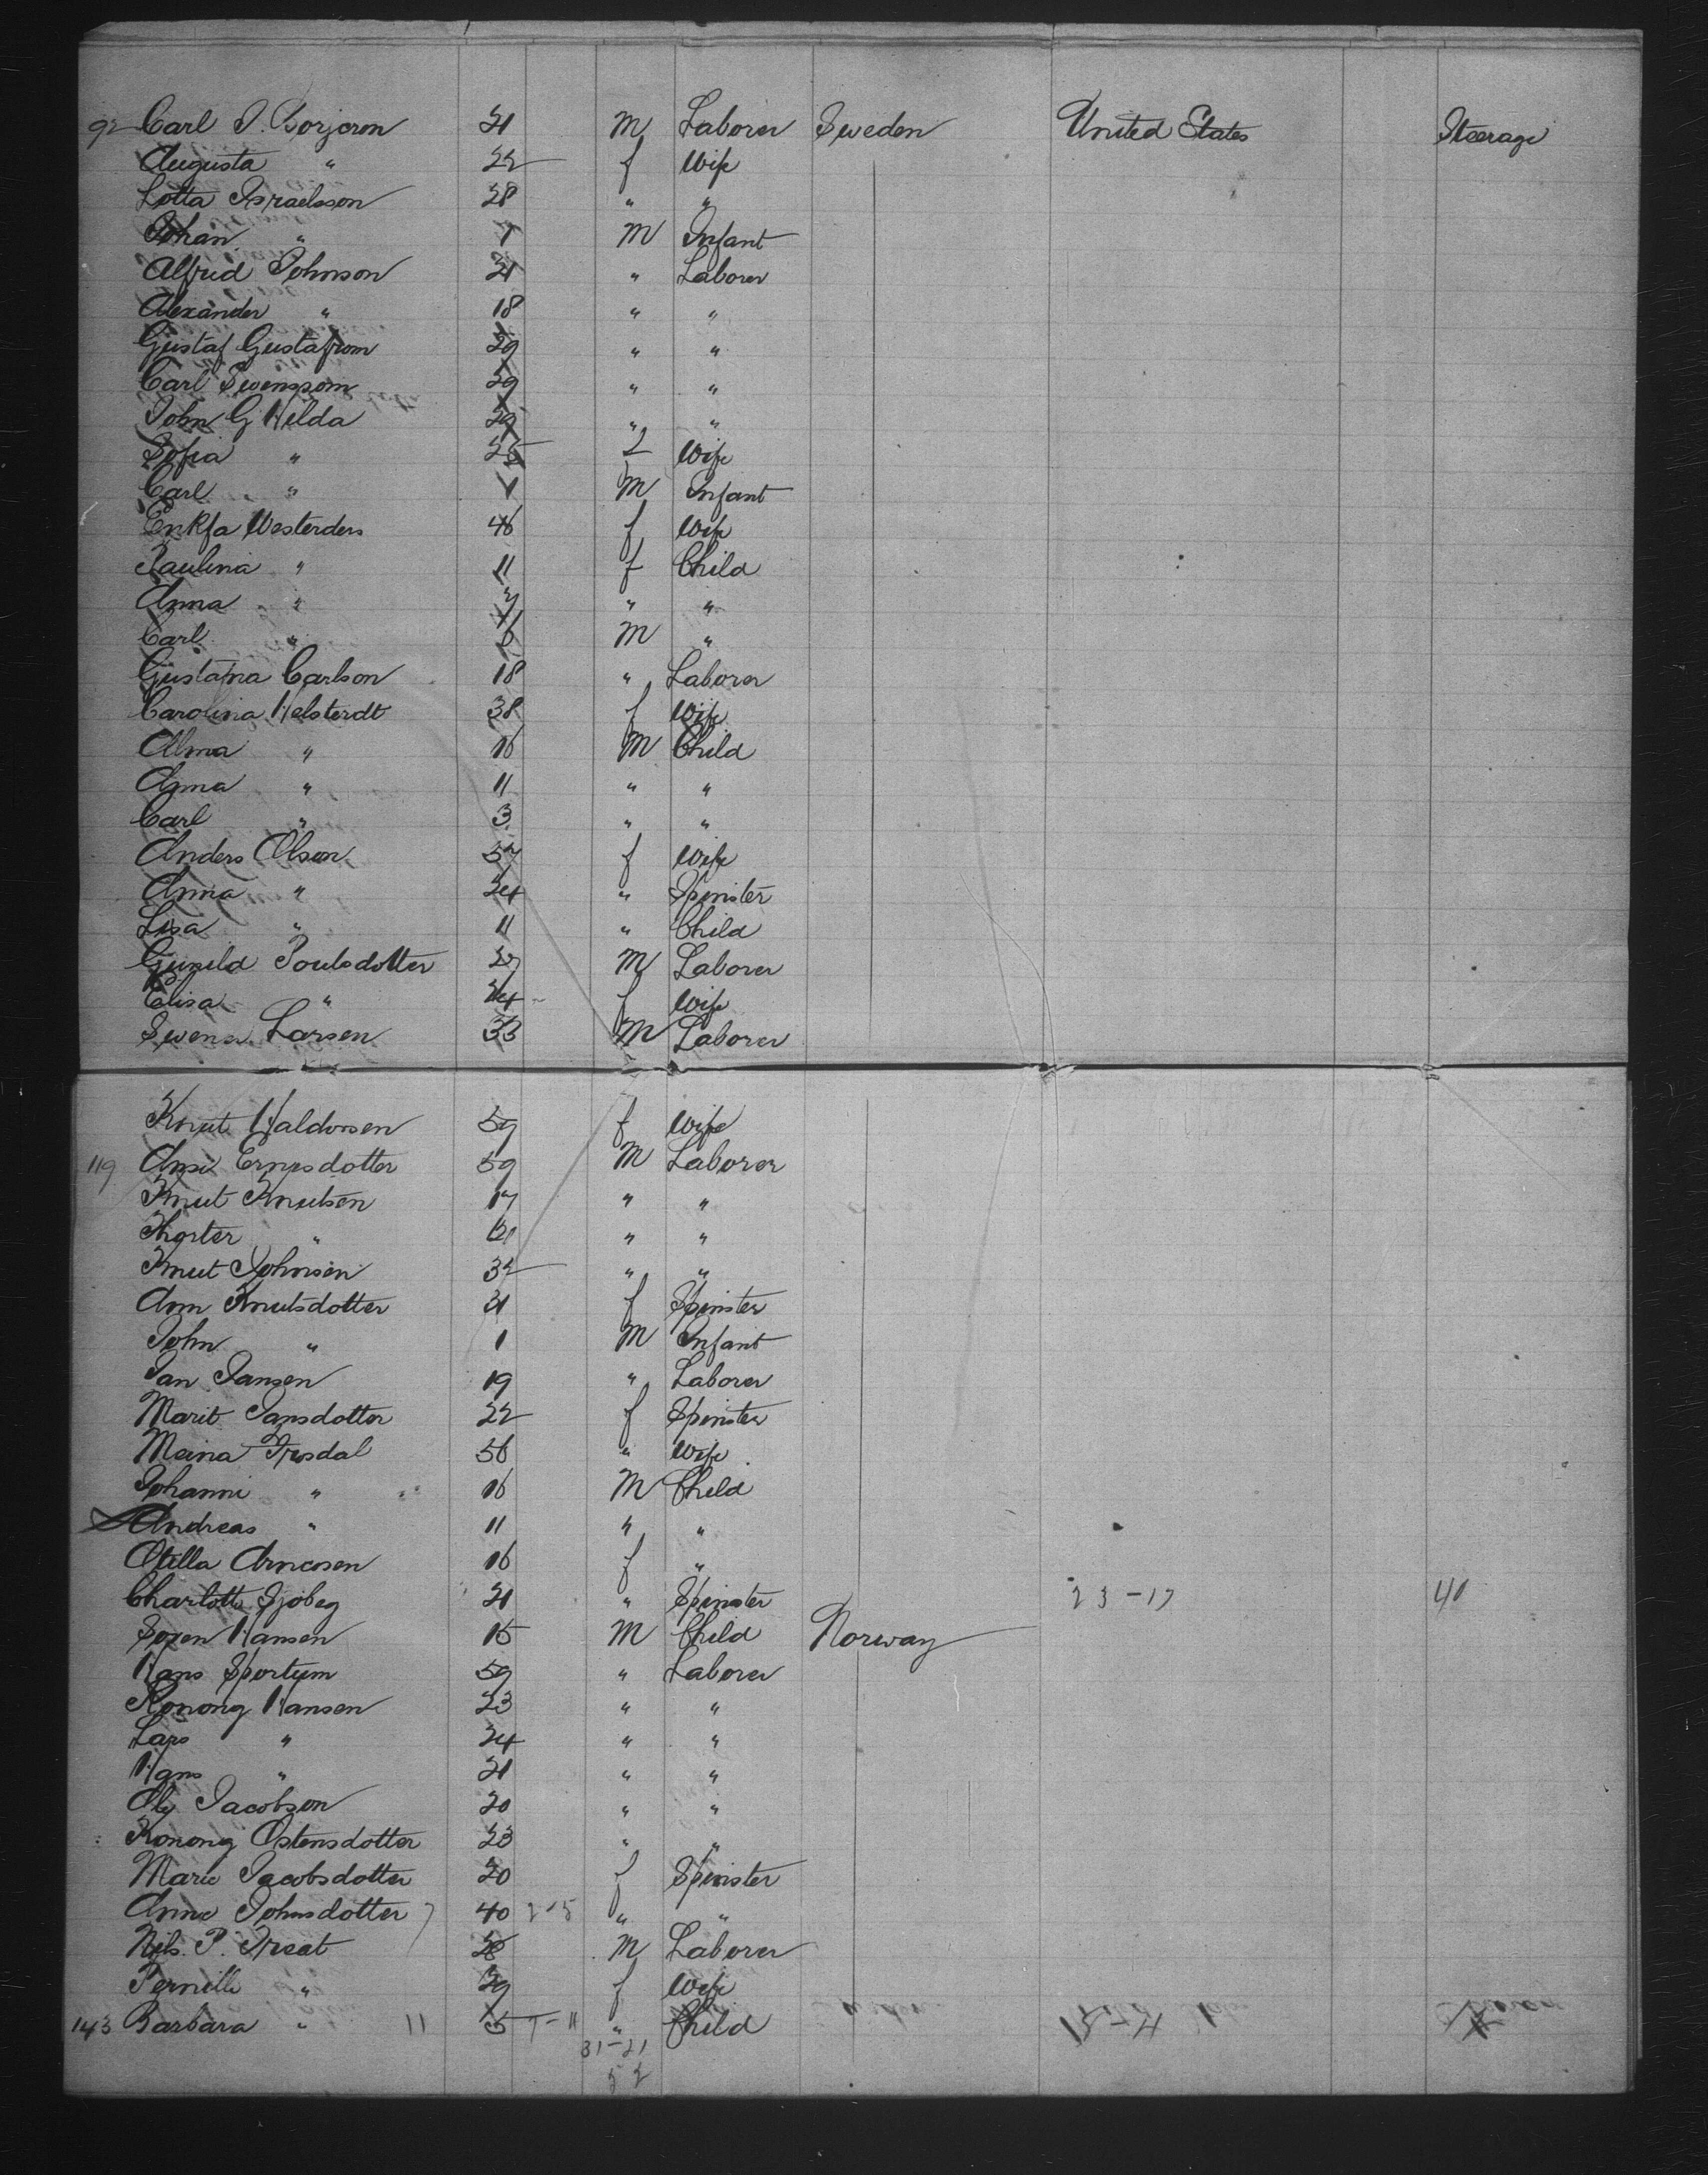 92 Carl J. Borjeron 21 M Laborer Sweden United States Steerage
Augusta " 22 f Wife
Lotta Israelsson 28 " "
Johan " 1 M Infant
Alfrid Johnson 21 " Laborer
Alexander " 18 " "
Gustaf Gustafsom 29 " "
Carl Swenssom 29 " "
John G Hilda 29 " "
Sofia " 25 f Wife
Carl " 1 M Infant
Enkfa Westerders 46 f Wife
Paulina " 11 f Child
Anna " 7 " "
Carl " 6 M "
Gustafna Carlson 18 " Laborer
Carolina Helsterdt 38 f Wife
Alma " 16 M Child
Anna " 11 " "
Carl " 3 " "
Anders Olson 57 f Wife
Anna " 24 " Spinster
Lisa " 11 " Child
Gunild Poulsdotter 27 M Laborer
Elisa " 24 f Wife
Swenn Larsen 33 M Laborer
Knut Haldorsen 59 f Wife
119 Ansi Ernisdotter 59 M Laborer
Knut Knutsen 17 " "
Thorter " "  "
Knut Johnsen 32 " "
Ann Knutsdotter 21 f Spinster
John " 1 M Infant
Jan Jansen 19 " Laborer
Marit Jansdotter 22 f Spinster
Meina Trosdal 56 " Wife
Johanni " 16 M Child
Andreas " 11 " "
Otilla Arncosen 16 f "
Charlotte Sjobeg 21 " Spinster 23-17 41
Soren Hansen 15 M Child Norway
Hans Sportum 59 " Laborer
Konong Hansen 23 " "
Lars " 24 " "
Hans " 21 " "
Ole Jacobson 20 " "
Konong Ostensdotter 23 " "
Marie Jacobsdotter 20 f Spinster
Anne Johnsdotter 7 40 2-5 " "
Nils. P. Treat 28 M Laborer
Pernille " 29 f Wife
143 Barbara " 11 5 1-11 " Child 12-4
31-21
52